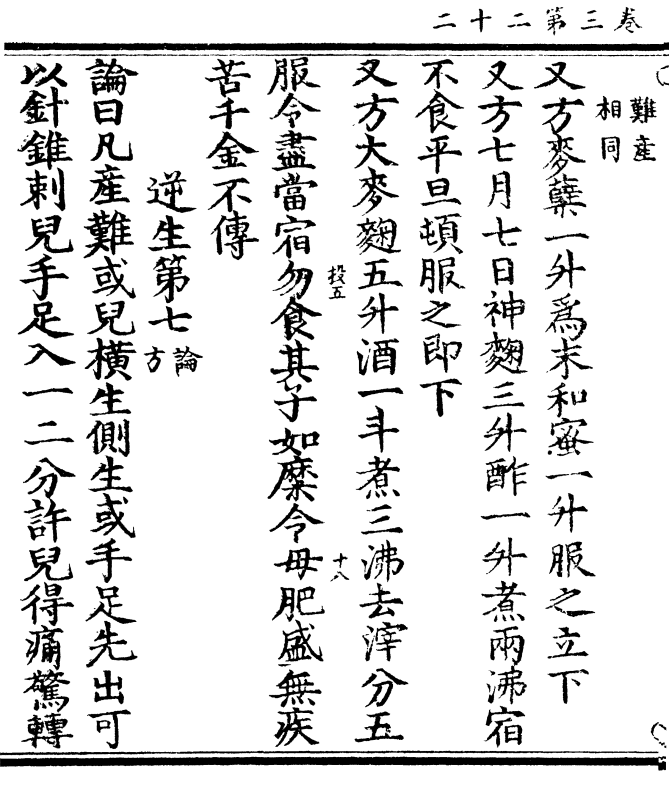 卷三第二十二
難産
相同
又方麥蘖一升為末和蜜一升服之立下
又方七月七日神麴三升酢一升煮兩沸宿
不食平旦頓服之即下
又方大麥麴五升酒一斗煮三沸去滓分五
投五
十八
服令盡當宿勿食其子如糜令母肥盛無疾
苦千金不傳
逆生第七
論
方
論曰凡産難或兒橫生側生或手足先出可
以針錐刺兒手足入一二分許兒得痛驚轉